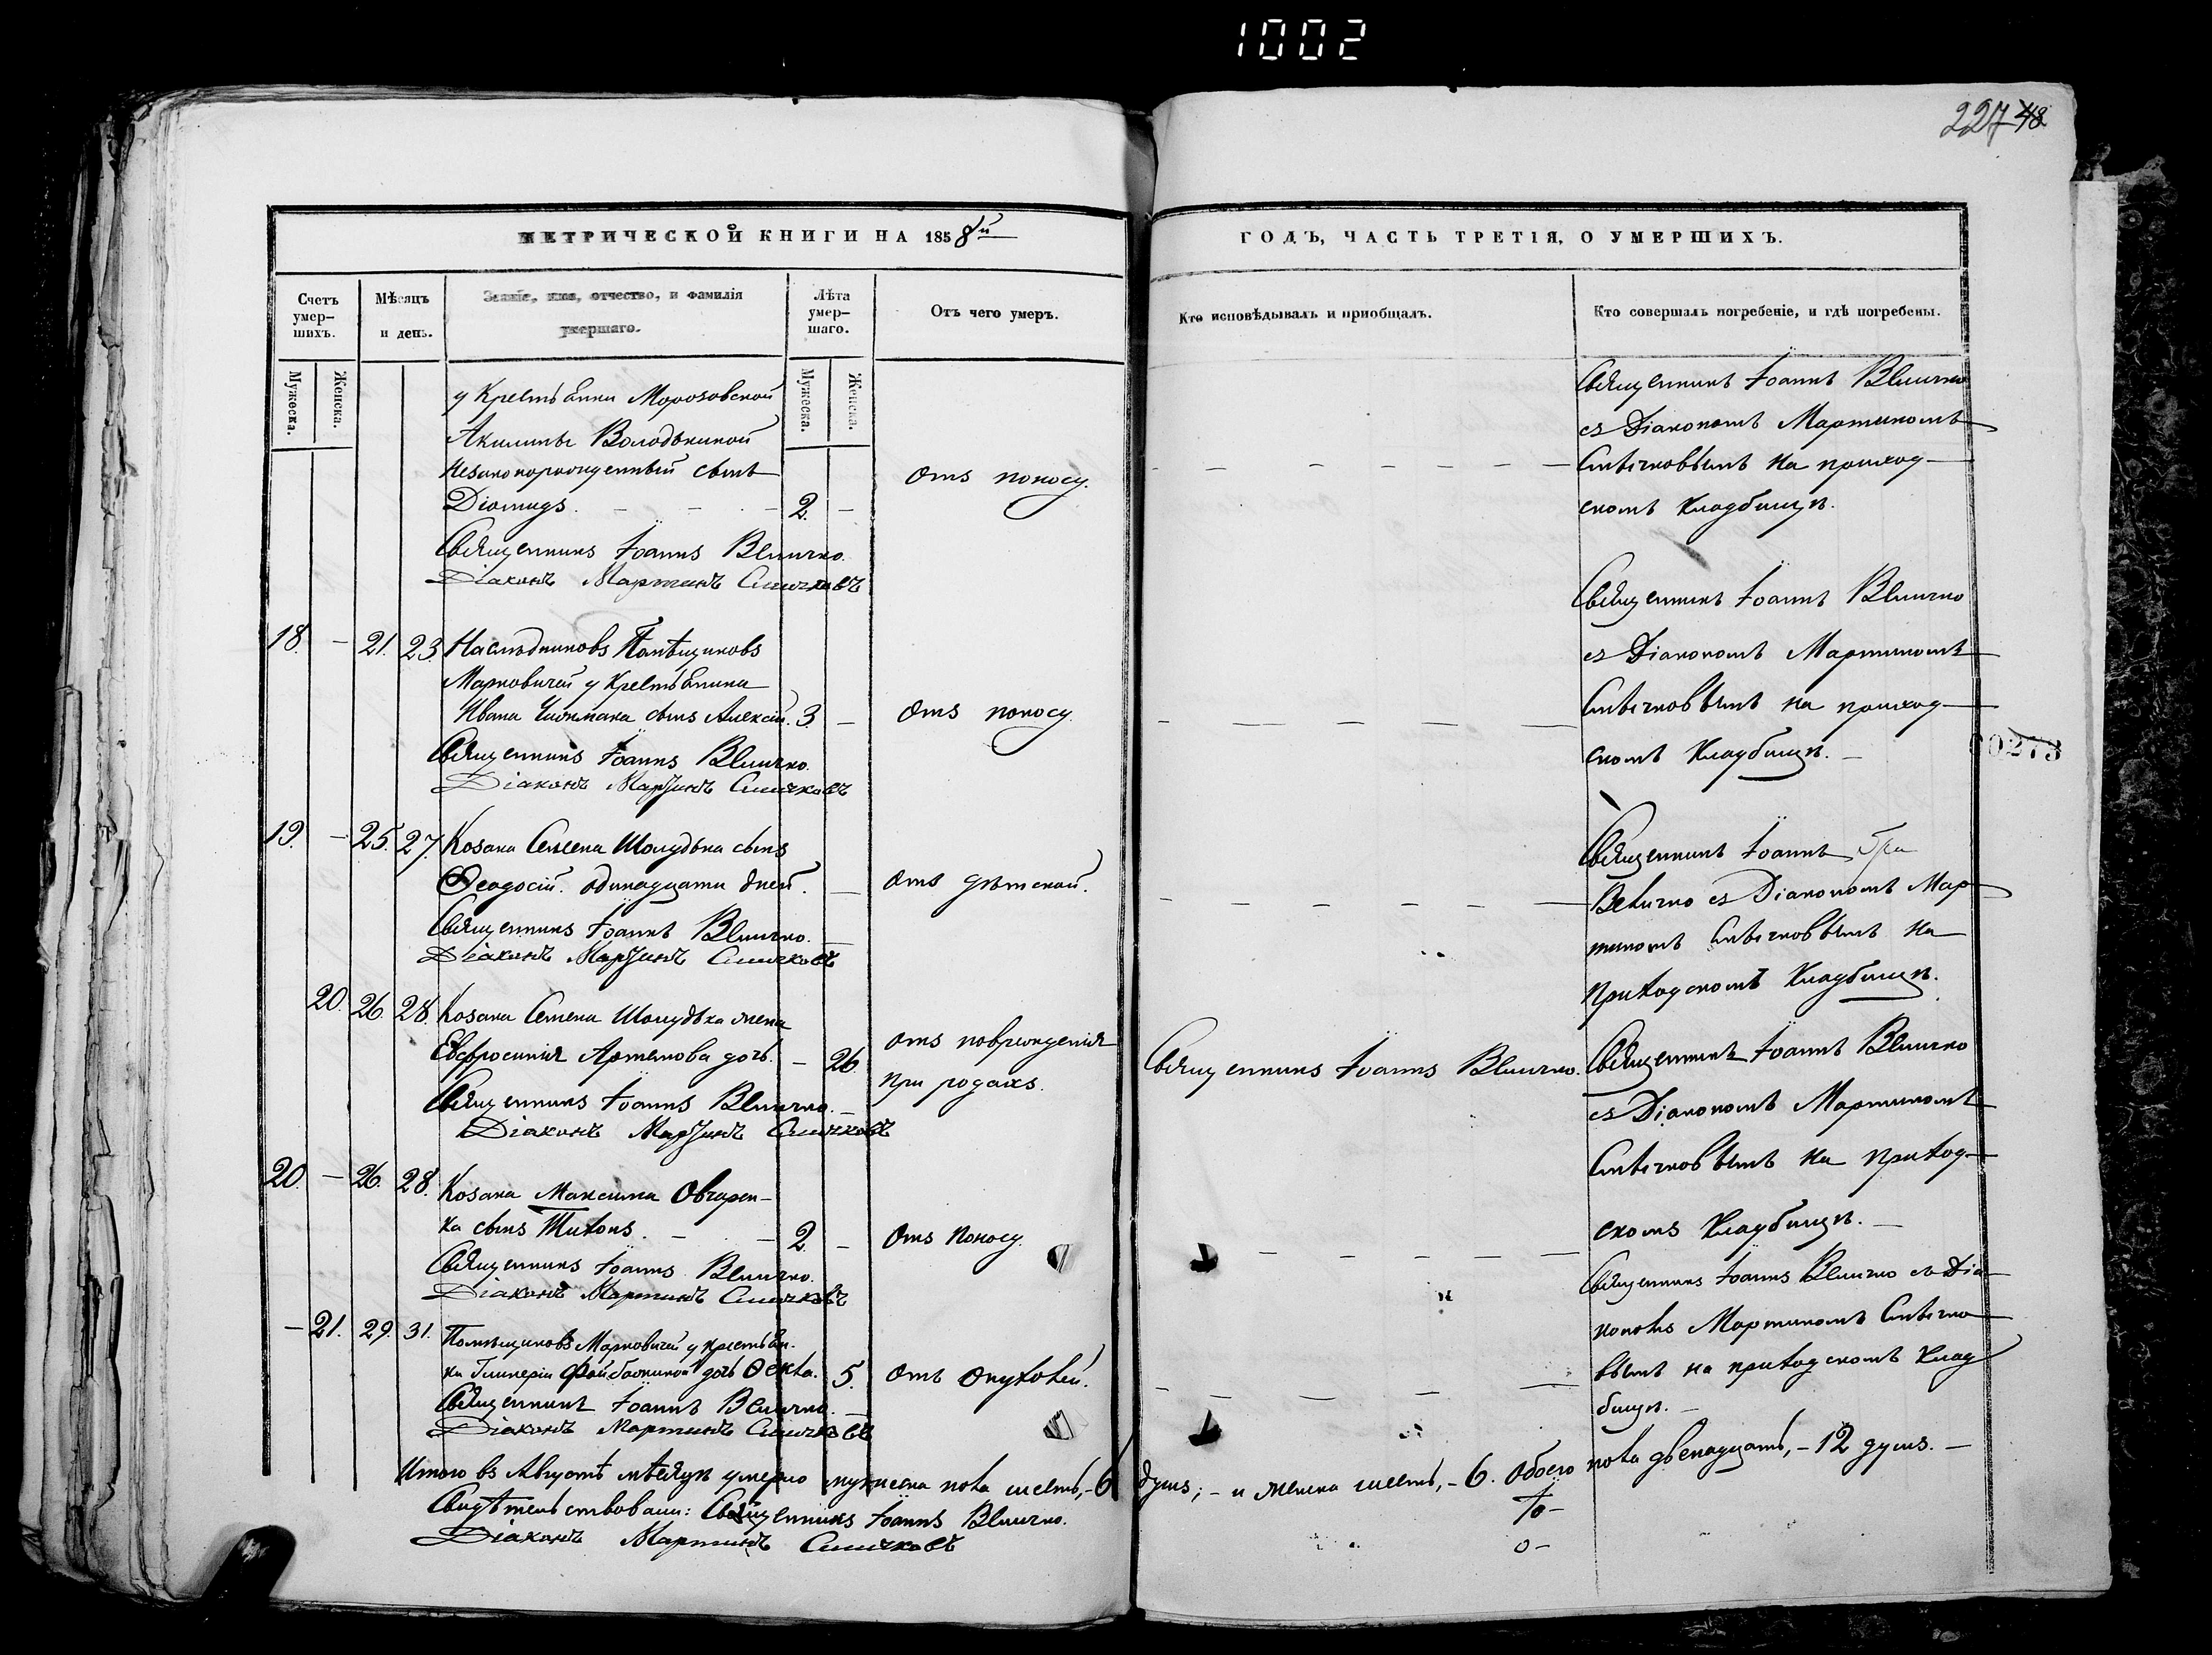 1002
227 48
МЕТРИЧЕСКОЙ КНИГИ НА 1858й
Счетъ умер-
шихъ.
Мѣсяцъ
и день.
Званіе, имя, отчество, и фамилія
умершаго.
Лѣта
умер-
шаго.
Отъ чего умеръ.
Мужеска.
Женска.
Мужеска.
Женска.
у Крестьянки Морозовской
Акилины Володькиной
незаконорожденный сынъ
Діомидъ. - - - 2. -
отъ поносу.
Священникъ Іоаннъ Величко.
Діаконъ Мартинъ
18. - 21. 23. Наслѣдниковъ Помѣщиковъ
Марковичей у Крестьянина
Ивана сынъ Алексій. 3. -
отъ поносу.
Священникъ Іоаннъ Величко.
Діаконъ Мартинъ
19. - 25. 27. Козака Семена Шолудька сынъ
Ѳеодосій. одинадцати дней. -
отъ дѣтской.
Священникъ Іоаннъ Величко.
Діаконъ Мартинъ
20. 26. 28. Козака Семена Шолудька жена
Евфросинія Артемова дочь. - 26.
отъ поврежденія
при родахъ.
Священникъ Іоаннъ Величко.
Діаконъ Мартинъ
20. - 26. 28. Козака Максима Овчарен-
ка сынъ Тихонъ. - - 2. -
отъ поносу.
Священникъ Іоаннъ Величко.
Діаконъ Мартинъ
- 21. 29. 31. Помѣщиковъ Марковичей у крестьян-
ки Гликеріи дочь Ѳекла. 5.
отъ опухолей.
Священникъ Іоаннъ Величко.
Діаконъ Мартинъ
Итого въ Августѣ мѣсяцѣ умерло мужеска пола шесть,- 6
Свидѣтельствовали: Священникъ Іоаннъ Величко.
Діаконъ Мартинъ
ГОДЪ, ЧАСТЬ ТРЕТІЯ, О УМЕРШИХЪ.
Кто исповѣдывалъ и пріобщалъ.
Кто совершалъ погребеніе, и гдѣ погребены.
Священникъ Іоаннъ Величко
съ Діакономъ Мартиномъ
на приход-
скомъ кладбищѣ.
Священникъ Іоаннъ Величко
съ Діакономъ Мартиномъ
на приход-
скомъ кладбищѣ. -
00273
Священникъ Іоаннъ
Величко съ Діакономъ Мар-
тиномъ на
приходскомъ кладбищѣ.
Священникъ Іоаннъ Величко.
Священникъ Іоаннъ Величко
съ Діакономъ Мартиномъ
на приход-
скомъ кладбищѣ. -
Священникъ Іоаннъ Величко съ Діа-
кономъ Мартиномъ
вымъ на приходскомъ клад
бищѣ. -
душъ; - и женска шесть, - 6. обоего пола двенадцать, - 12 душъ. -